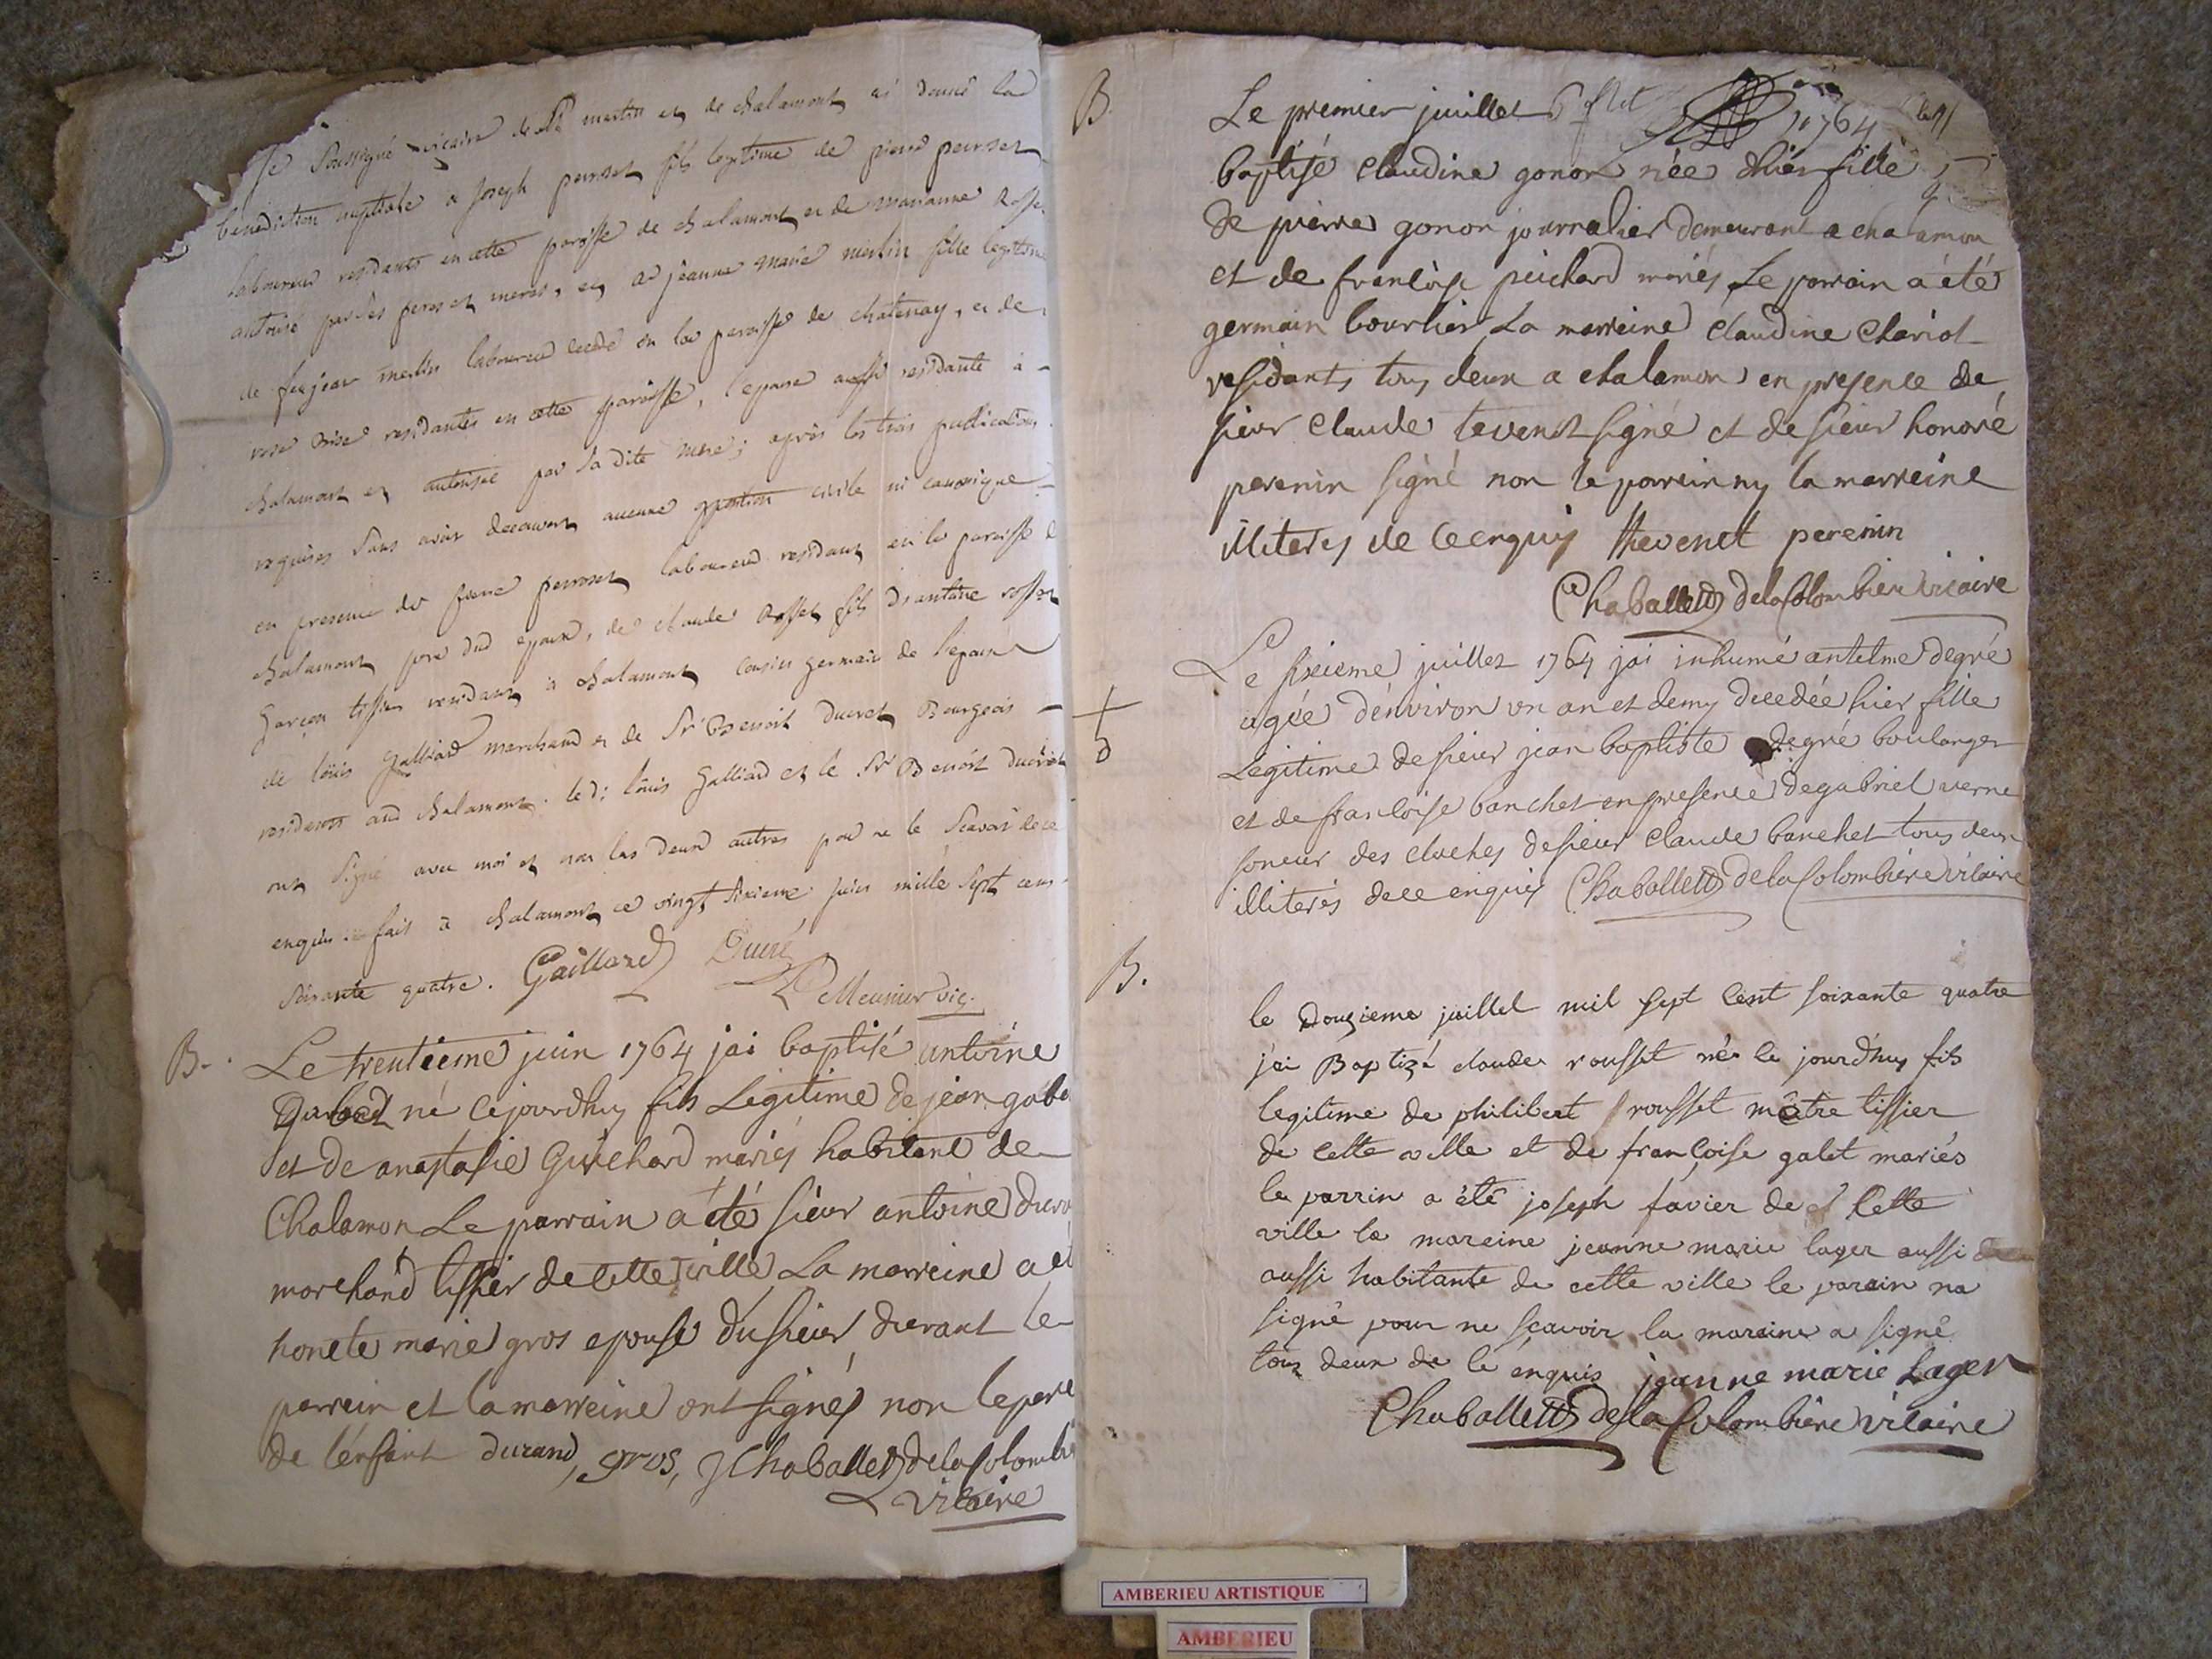 Je Soussigné vicaire de St martin et de chalamont ai donné la
benediction nuptiale a Joseph perroset fils legitime de pierre perroset
laboureur residants en cette paroisse de chalamont et de marianne Rosse
autorisé par ses peres et meres, et a jeanne marie merlin fille legitime
de feu jean merlin laboureur decedé en la paroisse de chatenay, et de
residantes en cette paroisse, l'epouse aussi residante a
chalamont et autorisée par sa dite mere; après les trois publications
requises sans avoir decouvert aucune opposition civile ni canonique
en presence de pierre perroset laboureur residant en la paroisse de
chalamont pere dud epoux, de claude Rosset fils d'antoine rosset
garçon tissier residant a chalamont cousin germain de l'epoux
de loüis galliard marchand et de Sr Benoit Ducret Bourgeois
residents aud chalamont. led: loüis Galliard et le Sr Benoit Ducret
ont signé avec moi et non les deux autres pour ne le scavoir de ce
enquis fait a chalamont ce vingt sixieme juin mille sept cens
soixante quatre. Gaillard Ducré
Meunier vic.
B.
Le trentieme juin 1764 jai baptisé antoine
gabed né cejourdhuy fils Legitime de jean gabe
et de anastasie Guichard mariés habitant de
Chalamon Le parrain a été sieur antoine dura
marchand tissier de cette ville La marreine a et
honete marie gros epouse du sieur durant le
parrein et la marreine ont signés non le pere
de l'enfant durand, gros, J Chaballet de la Colombi
vicaire
B.
Le premier juillet 1764
baptisé claudine gonon née d'hier fille
de pierre gonon journalier demeurant a chalamon
et de francoise peichard mariés Le parrain a été
germain bourlier La marreine claudine Chariot
residants tous deux a chalamon en presence de
sieur claude tevenet signé et de sieur honoré
perenin signé non le parrein ny la marreine
illiterés de ce enquis thevenet perenin
Chaballet de la Colombiere vicaire
Le sixieme juillet 1764 jai inhumé antelme degré
agée d'environ un an et demy decedée hier fille
Legitime de sieur jean baptiste degré boulanger
et de francoise banchet en presence de gabriel verne
soneur des cloches de sieur claude banchet tous deux
illiterés de ce enquis Chaballet de la Colombiere vicaire
B.
le Douzieme juillet mil sept cent soixante quatre
j'ai Baptizé claude rousset né le jourdhuy fils
legitime de philibert rousset mètre tissier
de cette ville et de françoise galet mariés
le parrin a été joseph favier de cette
ville la mareine jeanne marie lager aussi de
aussi habitante de cette ville le parain na
signé pour ne scavoir la maraine a signé
tous deux de ce enquis jeanne marie Lager
Chaballet de la Colombiere vicaire
AMBERIEU ARTISTIQUE
AMBERIEU